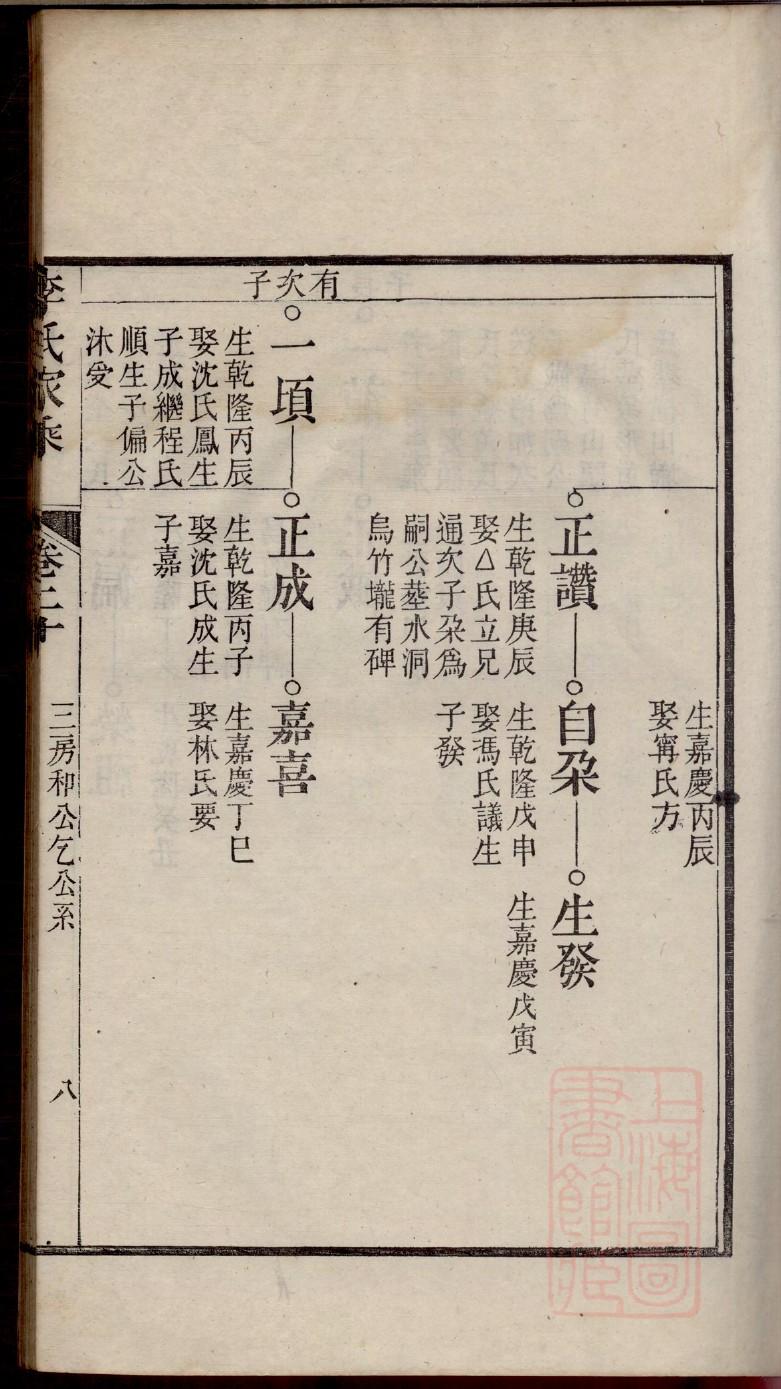 生嘉慶丙辰
娶甯氏方
正讚
生乾隆庚辰
娶△氏立兄
通次子朶為
嗣公塟水洞
烏竹壠有碑
自朶
生乾隆戊申
娶馮氏議生
子發
生發
生嘉慶戊寅
有次子
一頃
生乾隆丙辰
娶沈氏鳳生
子成繼程氏
順生子偏公
沐受
正成
生乾隆丙子
娶沈氏成生
子嘉
嘉喜
生嘉慶丁巳
娶林氏要
李氏家乘
卷二十
三房和公乞公系
八
上海圖
書館藏